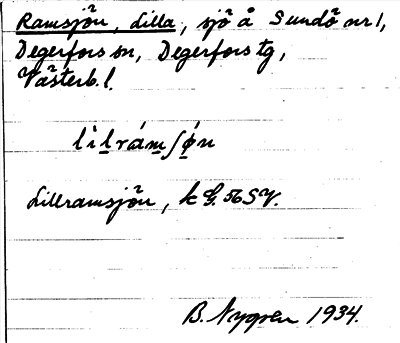 Ramsjön, Lilla, sjö å Sundö nr 1,
Degerfors sn, Degerfors tg,
Västerb. l.
lìlrámʃǿn
Lillramsjön, k G. 56 SV.
B. Nygren 1934.